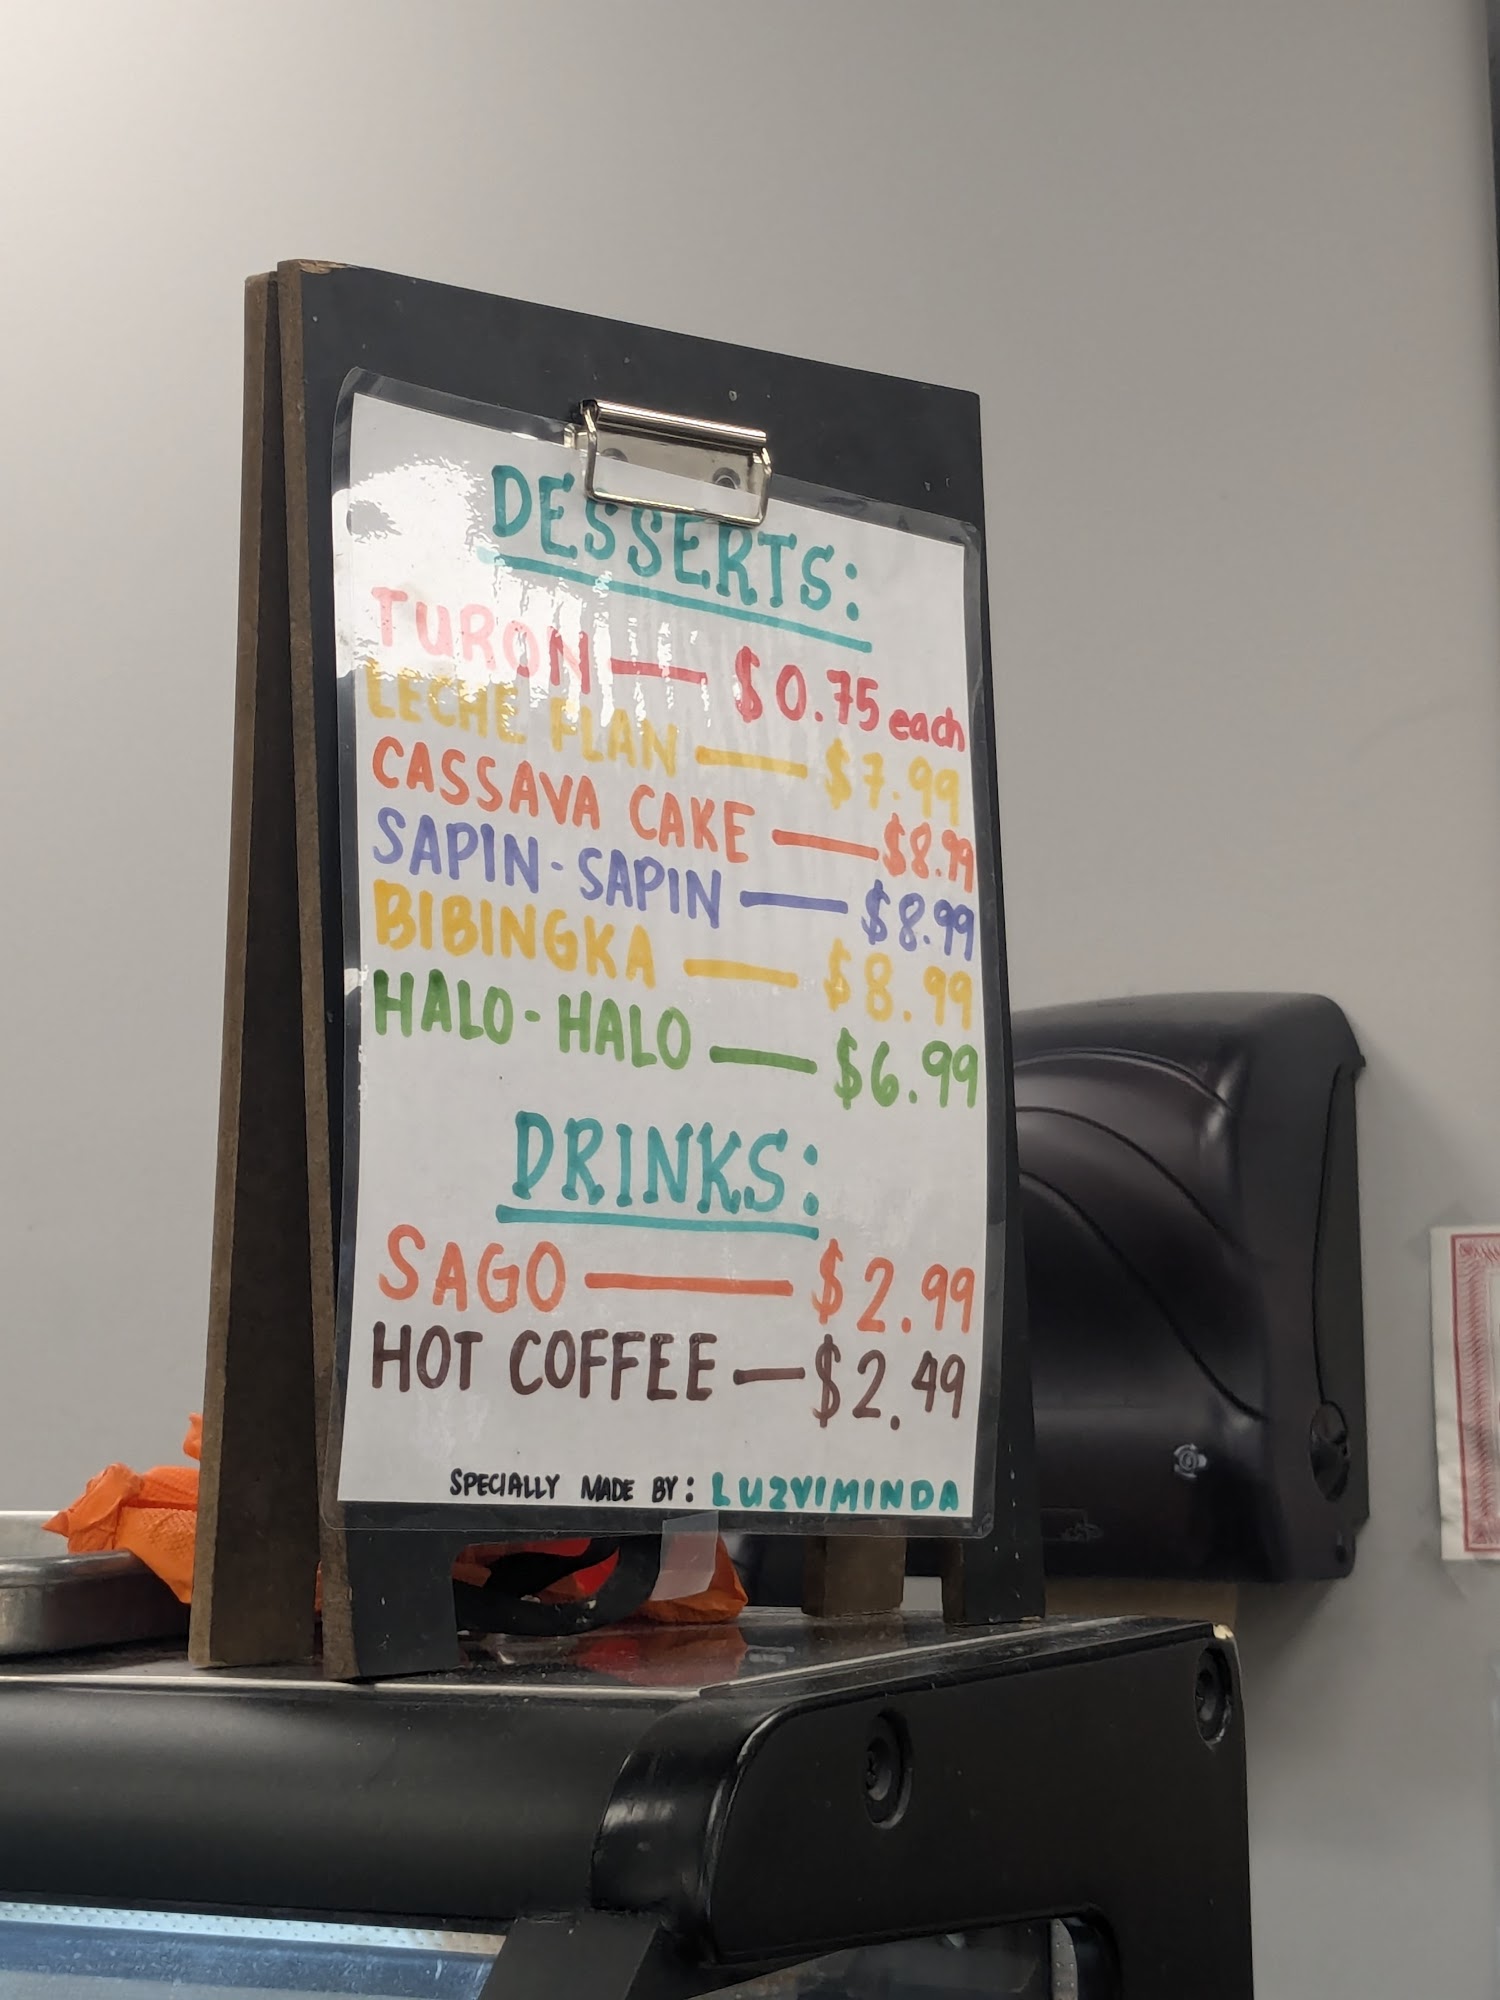 DESSERTS:
TURON — $0.75 each
LECHE FLAN — $7.99
CASSAVA CAKE — $8.99
SAPIN-SAPIN — $8.99
BIBINGKA — $8.99
HALO-HALO — $6.99
DRINKS:
SAGO — $2.99
HOT COFFEE — $2.49
SPECIALLY MADE BY: LUZVIMINDA